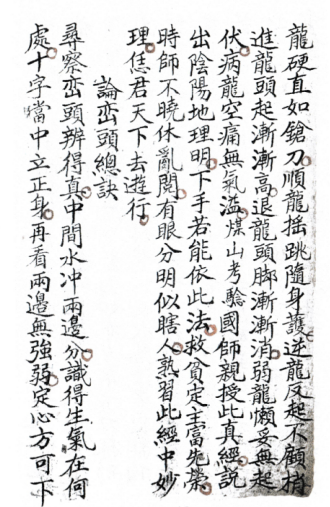 龍硬直如鎗刀順龍搖跳隨身護逆龍反起不顧指
進龍頭起漸漸高退龍頭脚漸漸消弱龍懶妥無起
伏病龍空痛無氣溢煤山考驗國師親授此真經説
出陰陽地理明下手若能依此法救貧定主富先榮
時師不曉休亂闘有眼分明似瞎人熟習此經中妙
理恁君天下去遊行
論峦頭總訣
尋察峦頭辨得真中間水冲兩邊分識得生氣在何
處十字當中立正身再看兩邊無強弱定心方可下